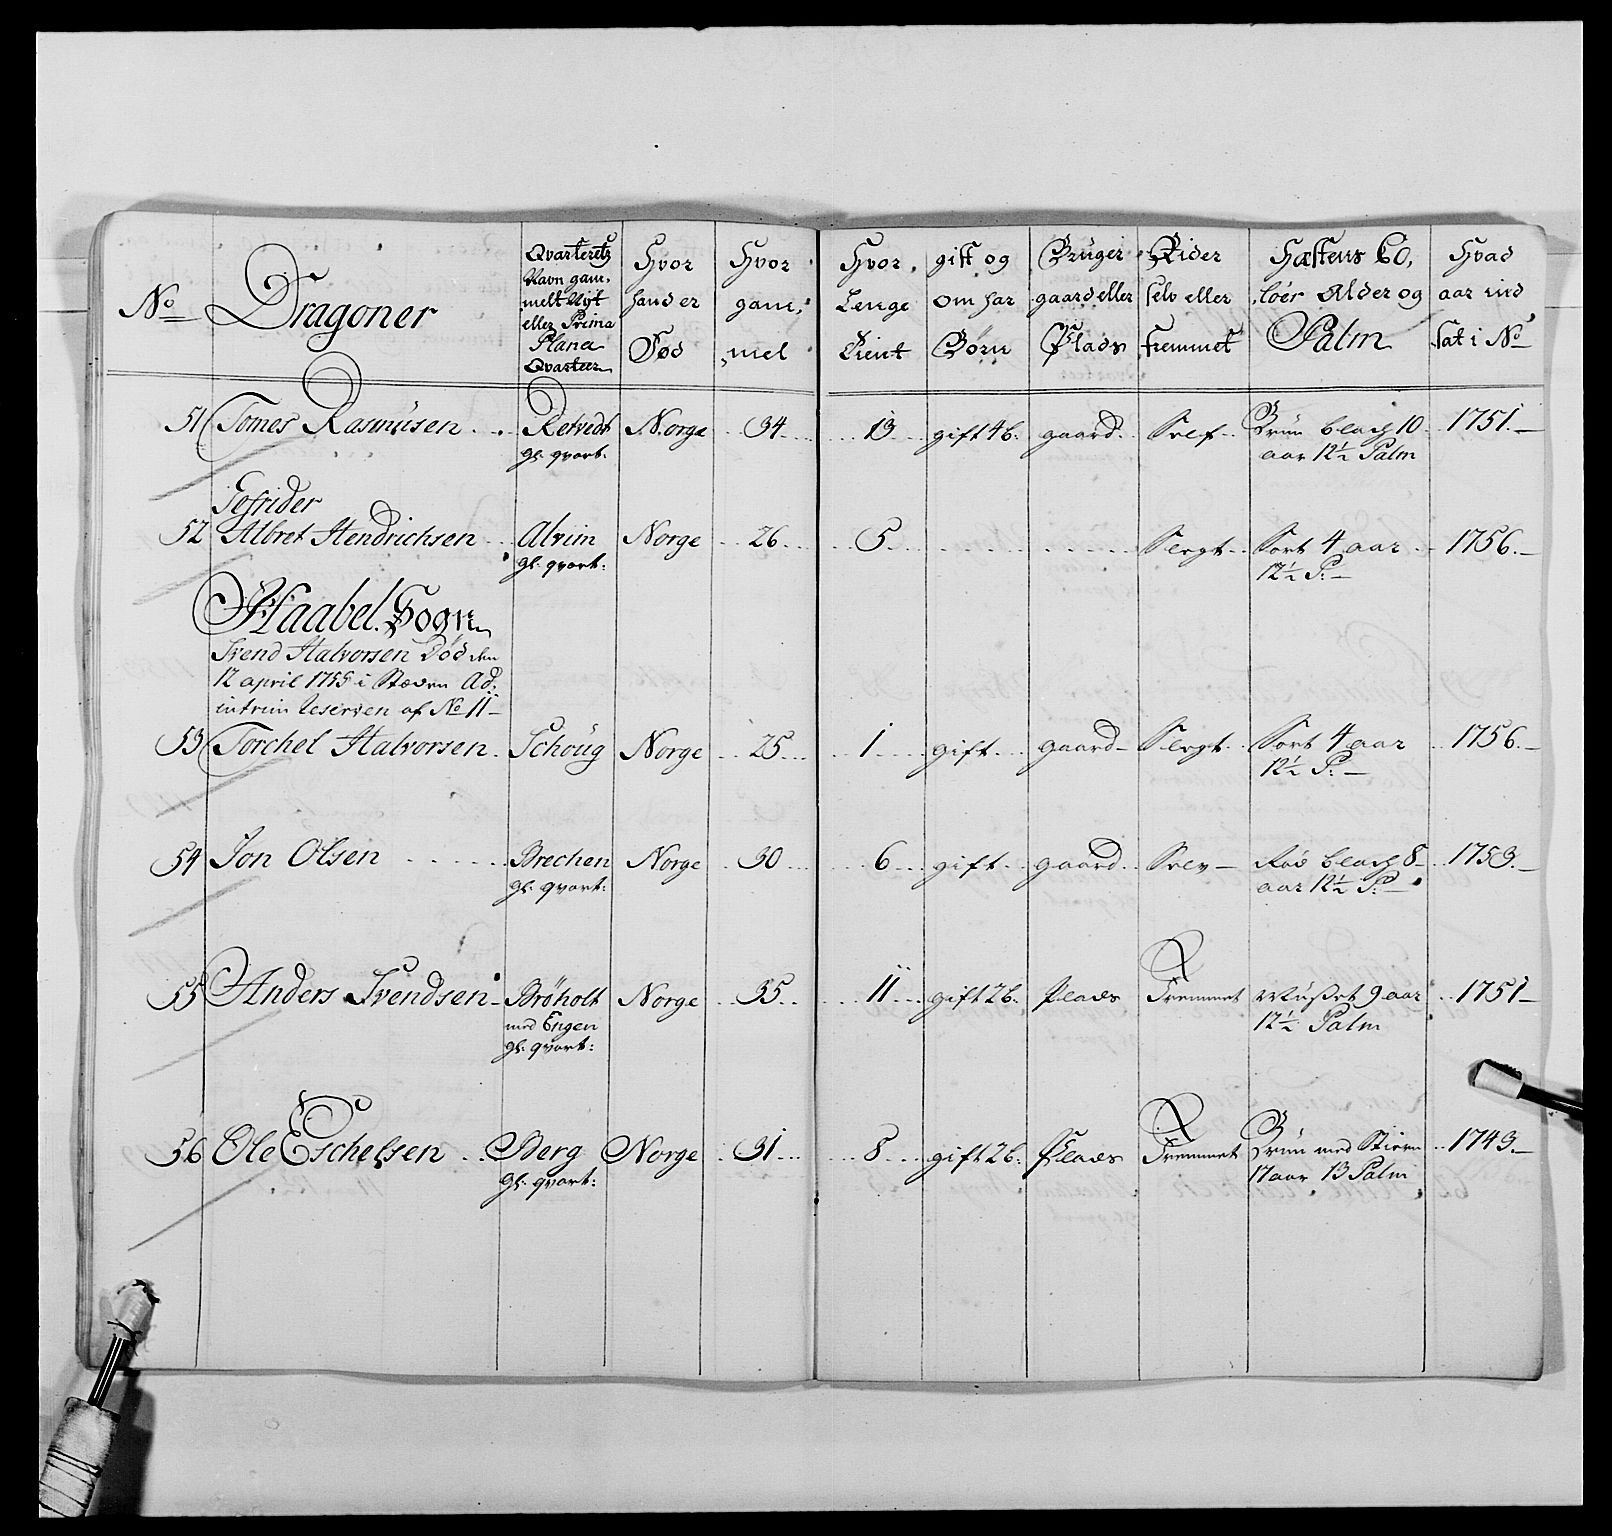 No
Dragoner
Qvarteretz
Navn gam,
melt Nyt
eller Prima
Plana
Qvarteer
Hvor
hand er
Fød
Hvor
gam,
mel
Hvor
Lenge
Tient
gift og
om har
Børn
Bruger
gaard eller
Plads
Rider
selv eller
fremmet
Hæstens Co,
löer Alder og
Palm
Hvad
aar ind
sat i No
51 Tomes Rasmüsen Retvedt Norge 34 13 gift 4 b: gaard Self Brün blach 10 1751
gl: qvart: aar 12½ Palm
Gefrider
52 Albret Hendrichsen Alvim Norge 26 5 Sergt Sort 4 aar 1756
gl: qvart: 12½ P:
Haabel Sogn
Svend Halvorsen Død den
12 april 1755 i Ad,
intrim Reserven af No 11
53 Torchel Halvorsen Schoug Norge 25 1 gift gaard Sergt Sort 4 aar 1756
12½ P:
54 Jon Olsen Brechen Norge 30 6 gift gaard Selv Rød blach 8 1753
gl: qvart: aar 12½ P:
55 Anders Svendsen Brøholt Norge 35 11 gift 2 b: Plads Fremmet Mußet 9 aar 1751
med Engen 12½ Palm
gl: qvart:
56 Ole Eschelsen Berg Norge 31 8 gift 2 b: Plads Fremmet Brün med Stiern 1743
gl: qvart: 17 aar 13 Palm